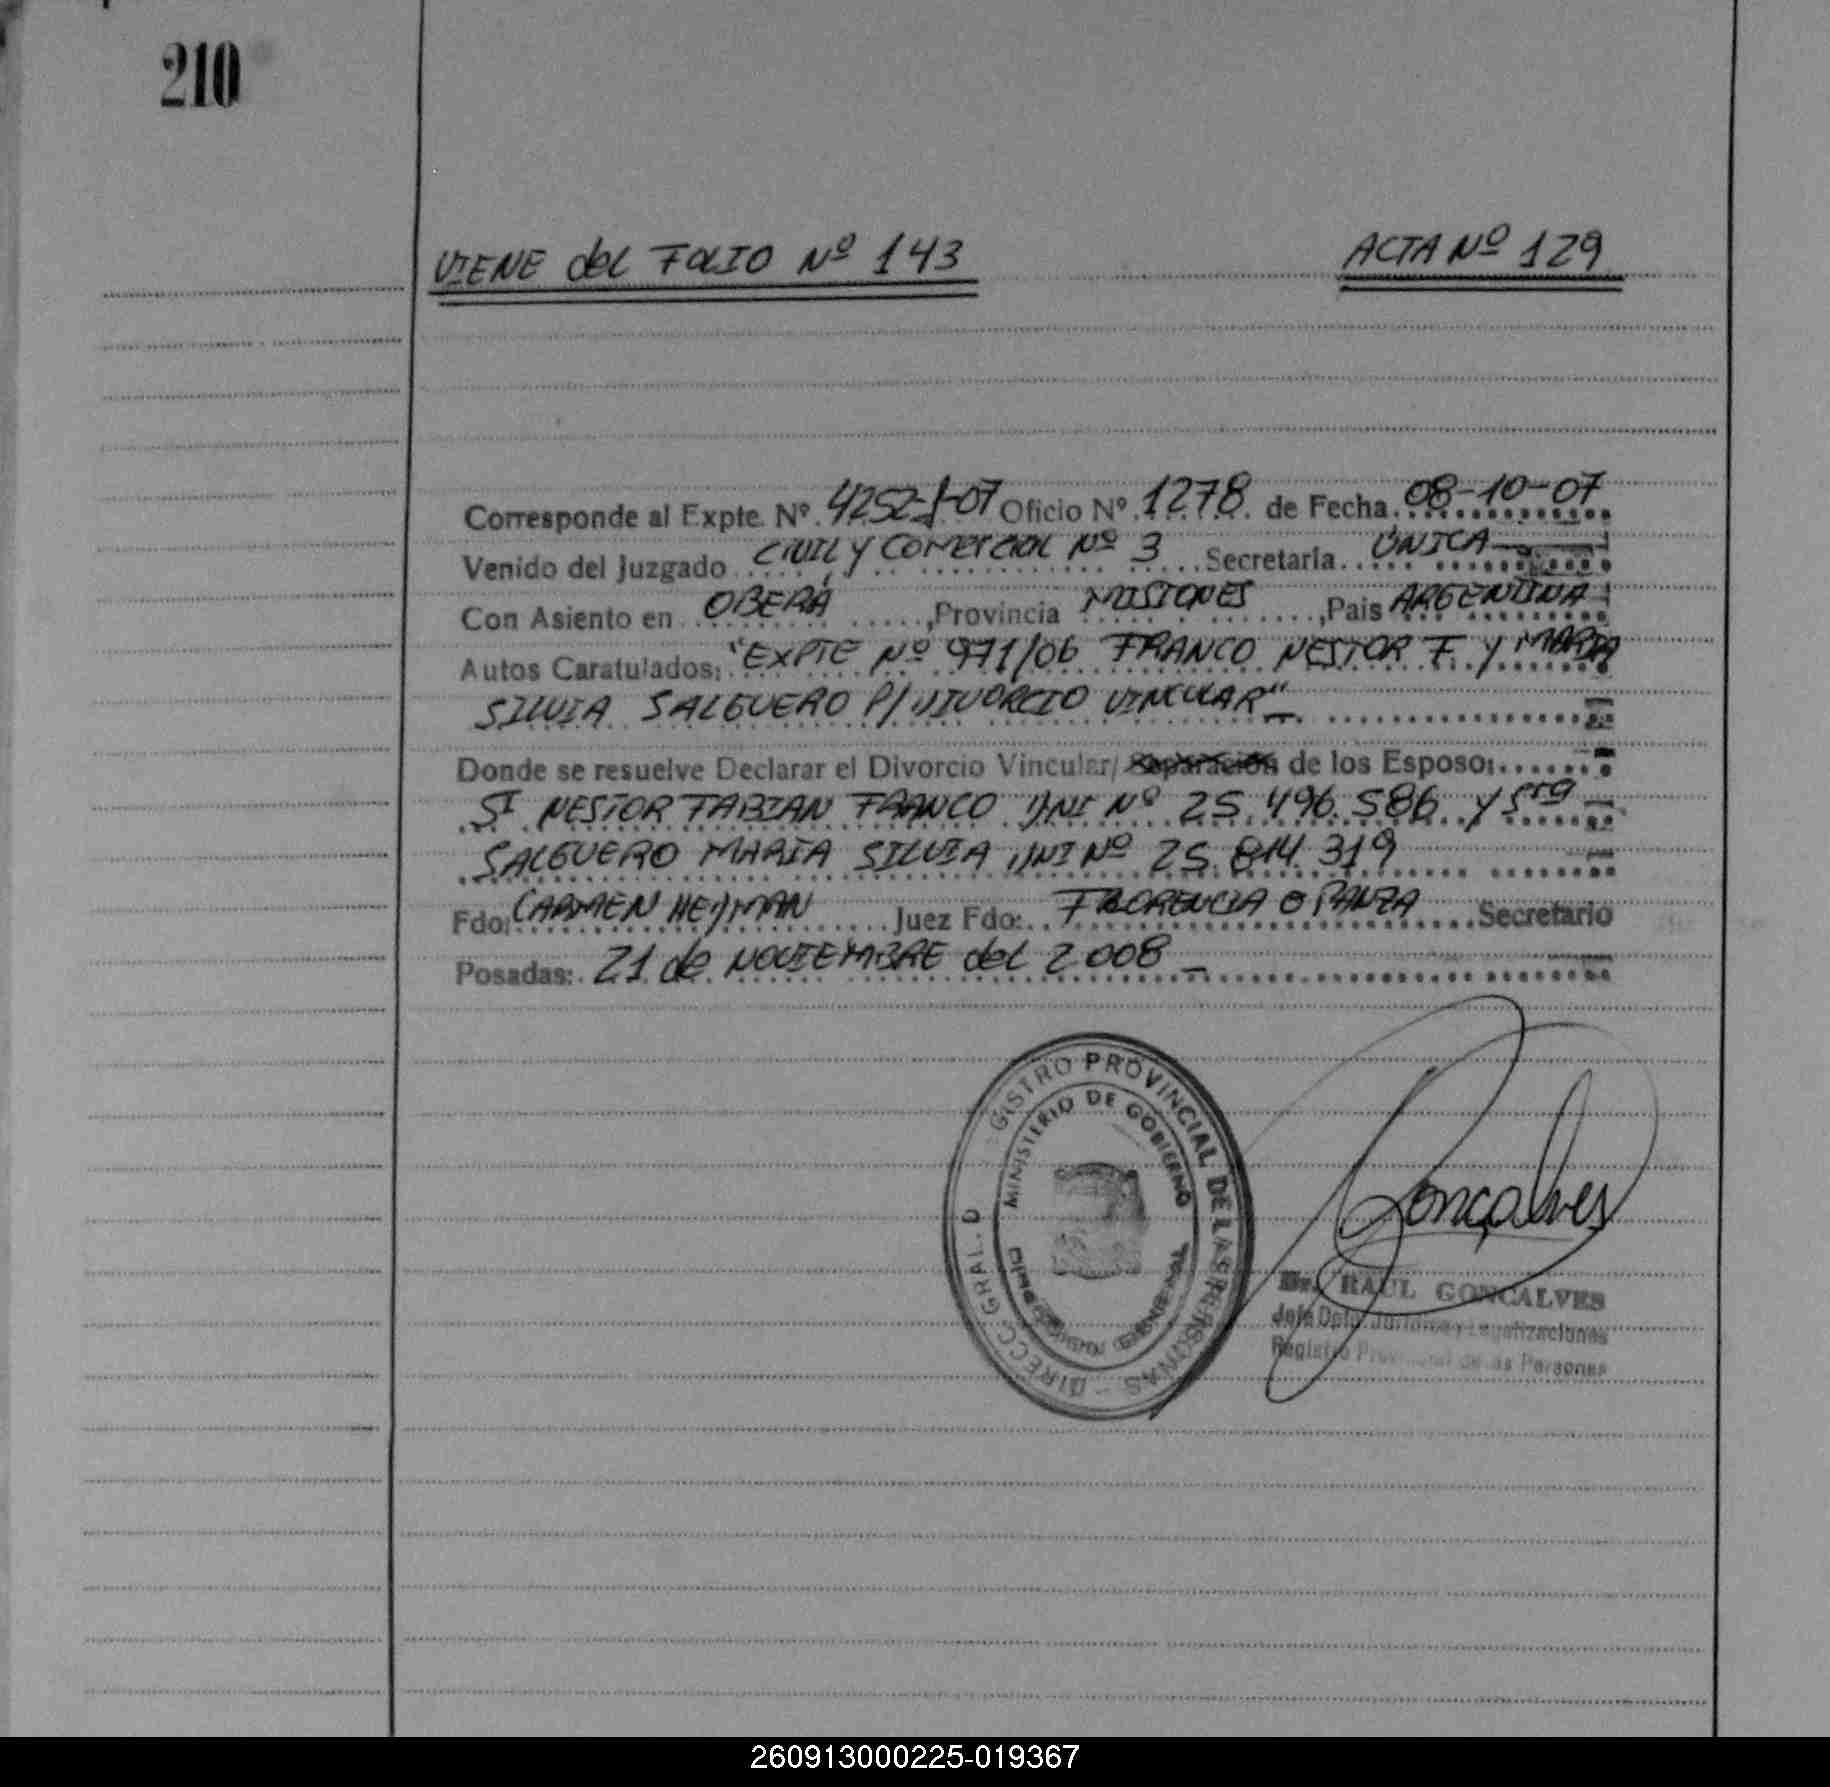 210
VIENE del FOLIO Nº 143 ACTA Nº 129
Corresponde al Expte. Nº. 4252-J-07 Oficio Nº. 1278. de Fecha. 08-10-07
Venido del Juzgado CIVIL Y COMERCIAL Nº 3 Secretaria ÚNICA
Con Asiento en OBERÁ ,Provincia MISIONES ,Pais ARGENTINA
Autos Caratulados: "EXPTE Nº 971/06 FRANCO NESTOR F. Y MARIA
SILVIA SALGUERO P/ DIVORCIO VINCULAR"
Donde se resuelve Declarar el Divorcio Vincular/ Separación de los Esposo:
Sr NESTOR FABIAN FRANCO DNI Nº 25.496.586 y Sra
SALGUERO MARIA SILVIA DNI Nº 25.814.319
Fdo: CARMEN HEDMAN Juez Fdo: FLORENCIA Secretario
Posadas: 21 de NOVIEMBRE del 2008
GISTRO PROVINCIAL DE LAS PERSONAS - DIRECC. GRAL. D
MINISTERIO DE GOBIERNO
Gonçalves
Dr. RAUL GONCALVES
Jefe Dpto. Jurídico y Legalizaciones
Registro Provincial de las Personas
260913000225-019367